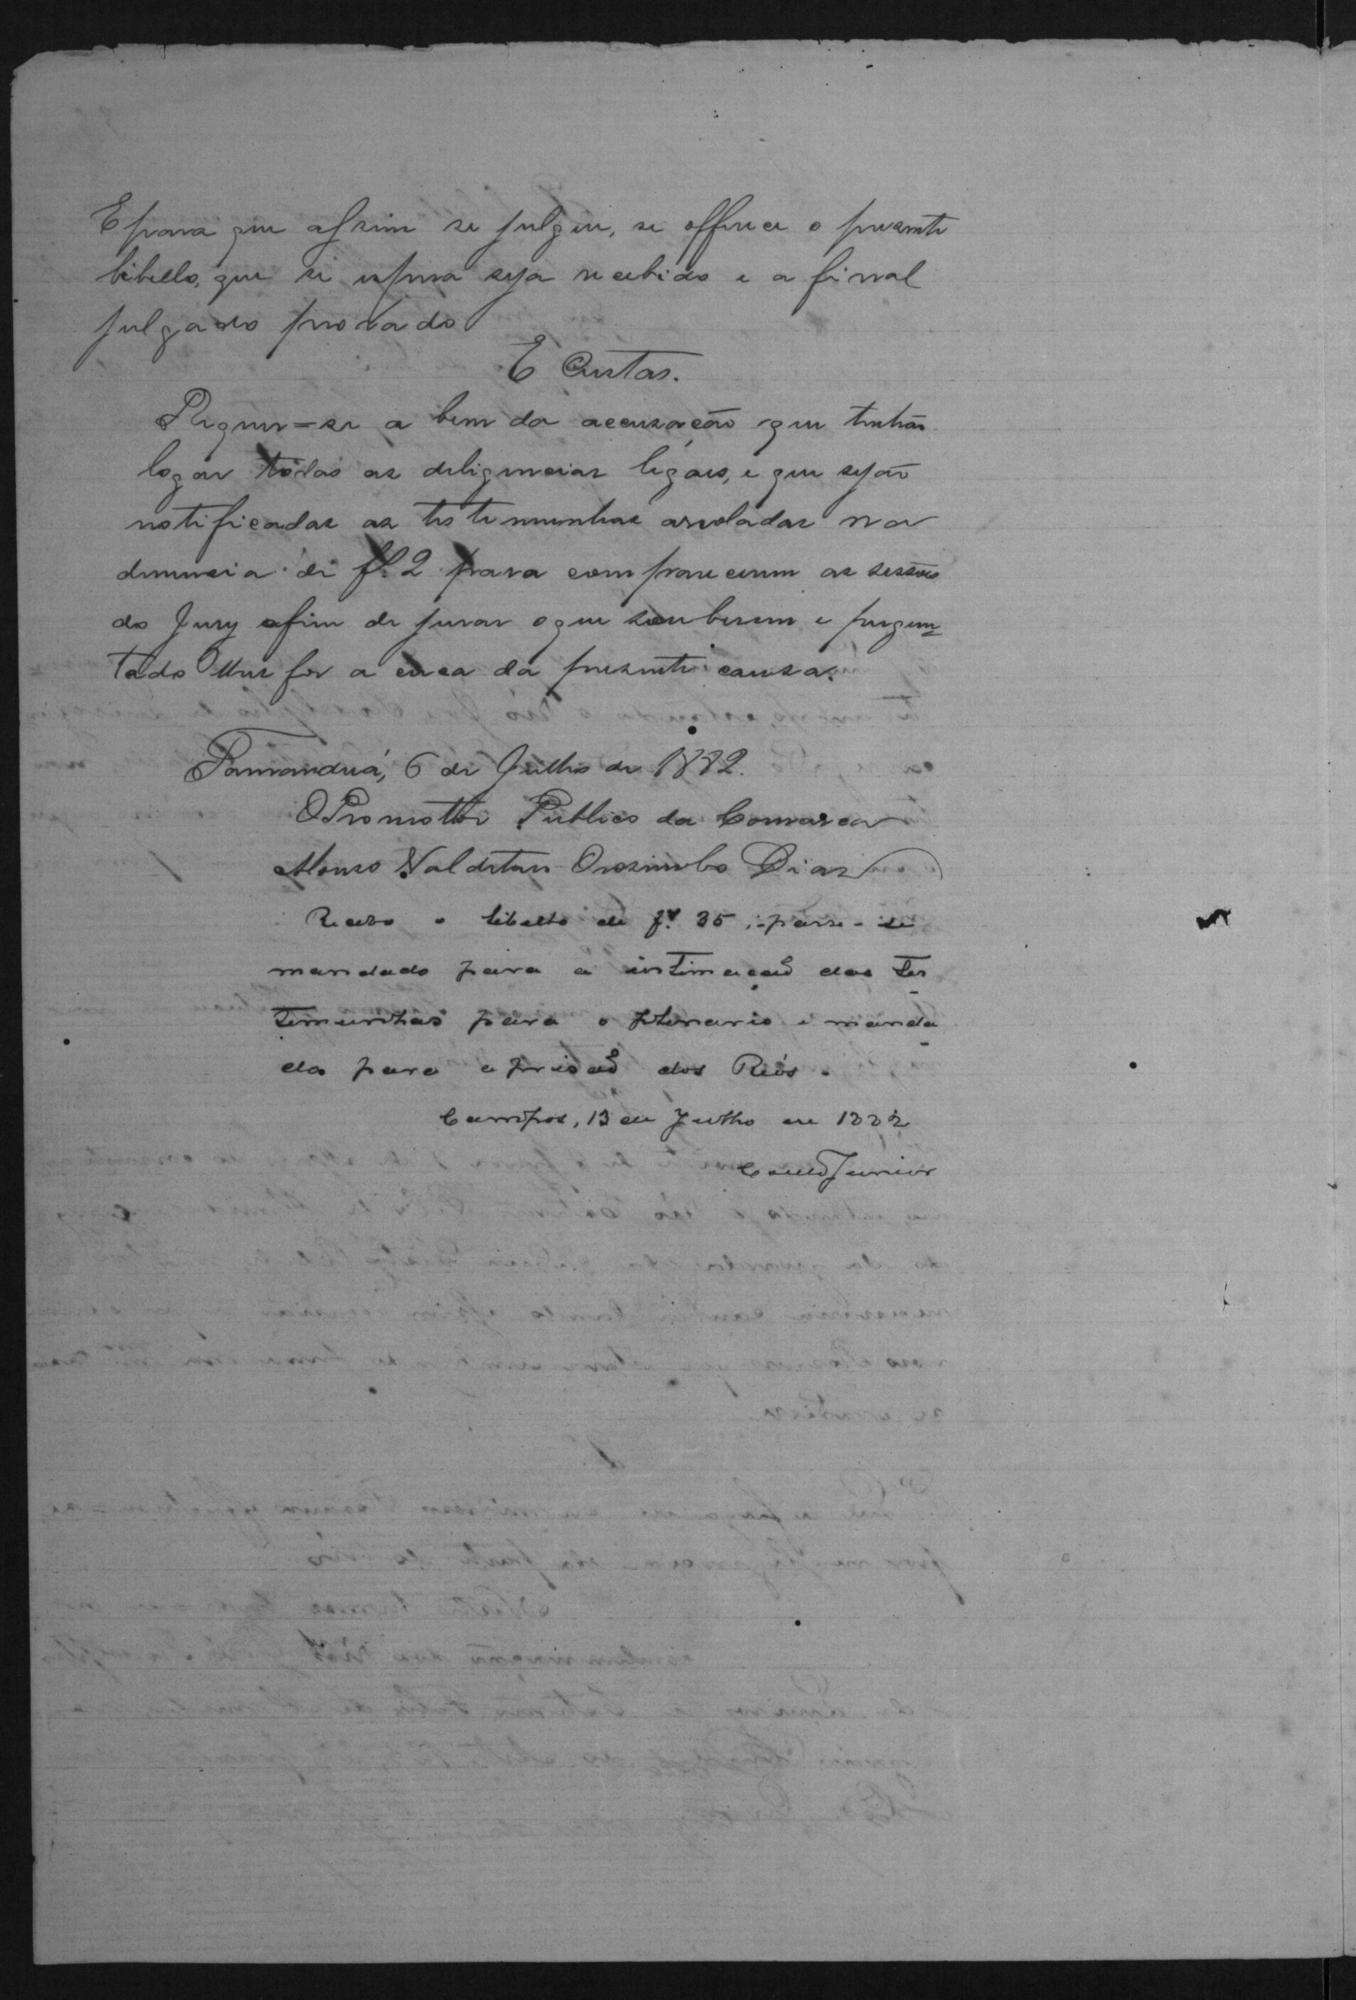 E para que assim se julgue, se offerece o presente
libello, que se espera seja recebido e a final
julgado provado
E Custas.
Requer=se a bem da accusação que tenhão
logar todas as diligencias legaes, e que sejão
notificadas as testemunhas arroladas na
denuncia de fl. 2 para comparecerem as sessões
do Jury afim de jurar o que souberem e pergun=
tado lhes for a cerca da presente causa.
Tamanduá, 6 de Julho de 1882.
O Promottor Publico da Comarca
Orosimbo Dias
Recebo o libello de fl. 35, passe-se
mandado para a intimação das tes
temunhas para o plenario e manda
do para a prisão dos Réos.
Campos, 13 de Julho de 1882
Junior